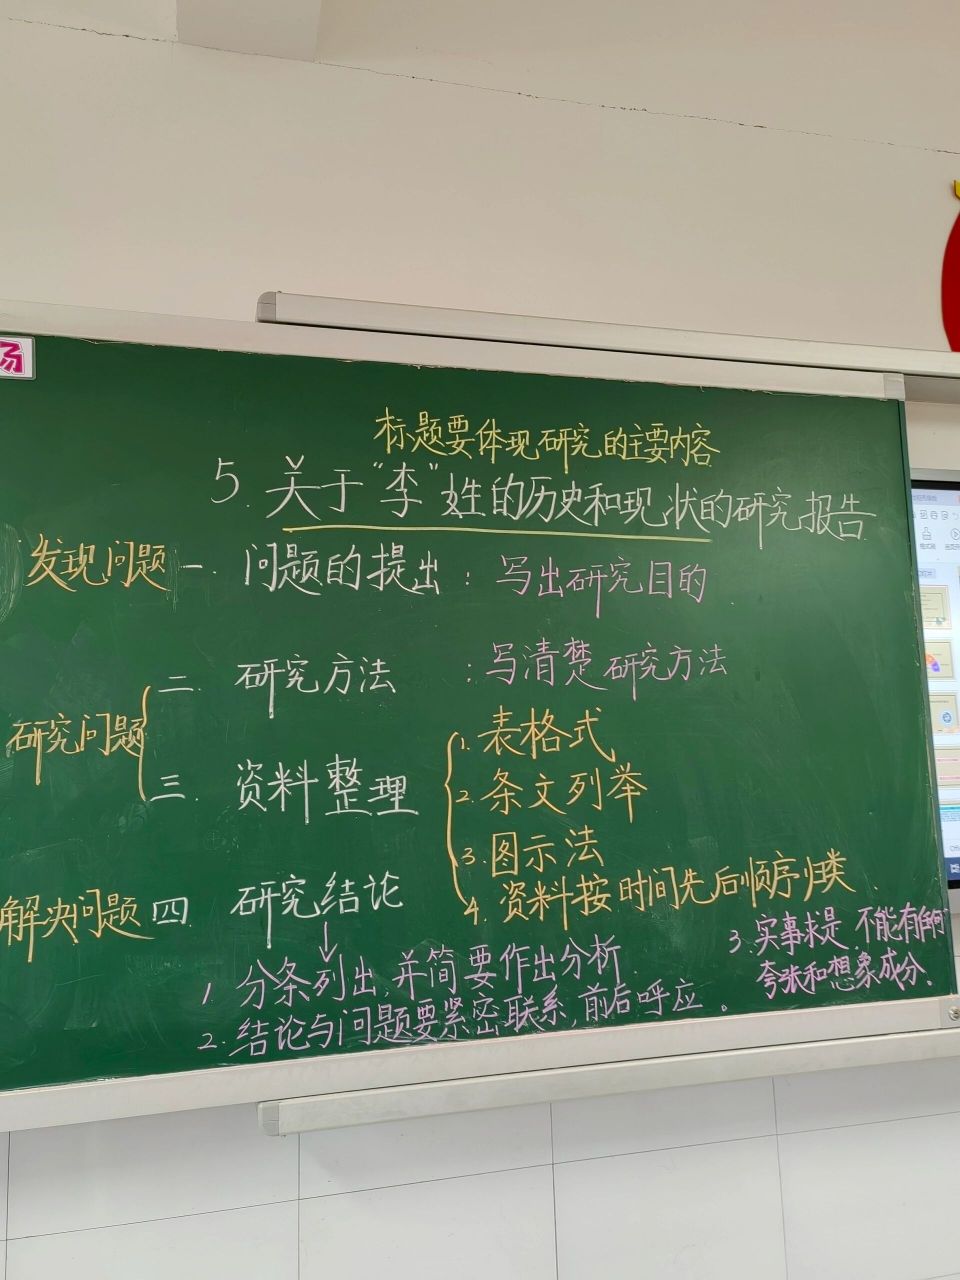 汤
标题要体现研究的主要内容
5. 关于“李”姓的历史和现状的研究报告
发现问题 一. 问题的提出：写出研究目的
二. 研究方法：写清楚研究方法
研究问题
三. 资料整理
1. 表格式
2. 条文列举
3. 图示法
4. 资料按时间先后顺序归类.
解决问题 四. 研究结论
↓
1. 分条列出 并简要作出分析.
2. 结论与问题要紧密联系,前后呼应。
3. 实事求是.不能有任何
夸张和想象成分.